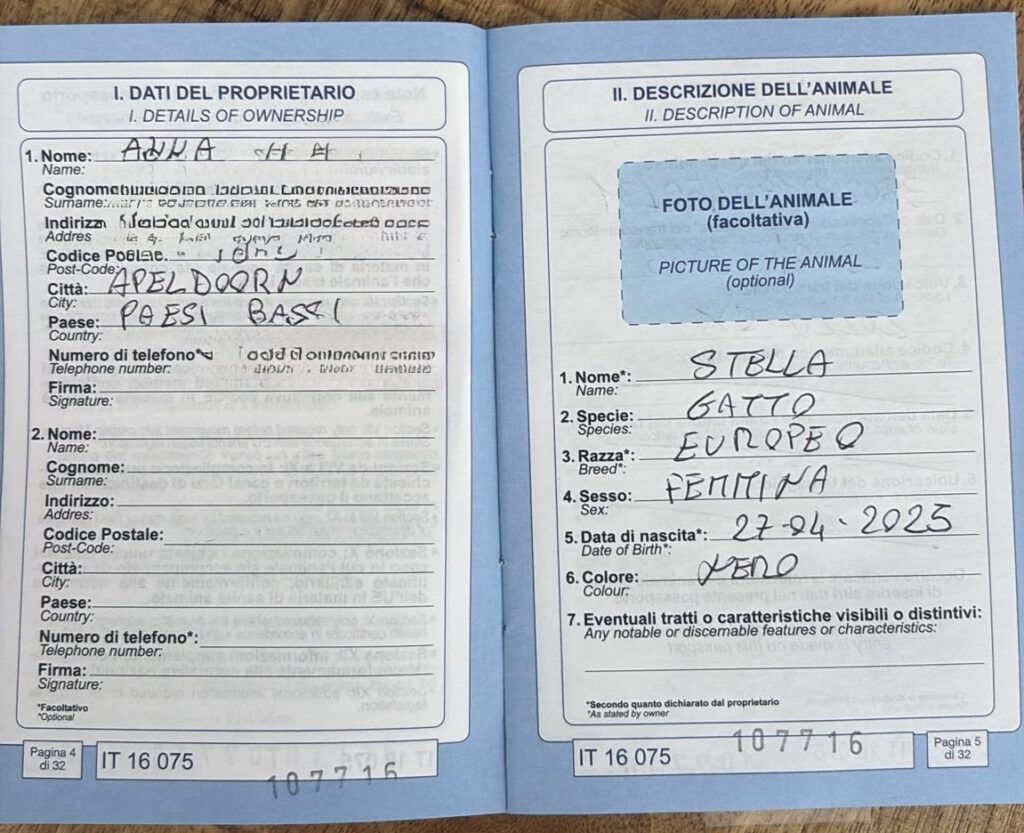 I. DATI DEL PROPRIETARIO
I. DETAILS OF OWNERSHIP
1. Nome: ANNA
Name:
Cognome
Surname:
Indirizz
Addres
Codice Po
Post-Code:
Città: APELDOORN
City:
Paese: PAESI BASSI
Country:
Numero di telefono*
Telephone number:
Firma:
Signature:
2. Nome:
Name:
Cognome:
Surname:
Indirizzo:
Addres:
Codice Postale:
Post-Code:
Città:
City:
Paese:
Country:
Numero di telefono*:
Telephone number:
Firma:
Signature:
*Facoltativo
*Optional
Pagina 4
di 32
IT 16 075
107716
II. DESCRIZIONE DELL'ANIMALE
II. DESCRIPTION OF ANIMAL
FOTO DELL'ANIMALE
(facoltativa)
PICTURE OF THE ANIMAL
(optional)
1. Nome*: STELLA
Name:
2. Specie: GATTO
Species:
3. Razza*: EUROPEO
Breed*:
4. Sesso: FEMMINA
Sex:
5. Data di nascita*: 27-04-2025
Date of Birth*:
6. Colore: NERO
Colour:
7. Eventuali tratti o caratteristiche visibili o distintivi:
Any notable or discernable features or characteristics:
*Secondo quanto dichiarato dal proprietario
*As stated by owner
IT 16 075
107716
Pagina 5
di 32